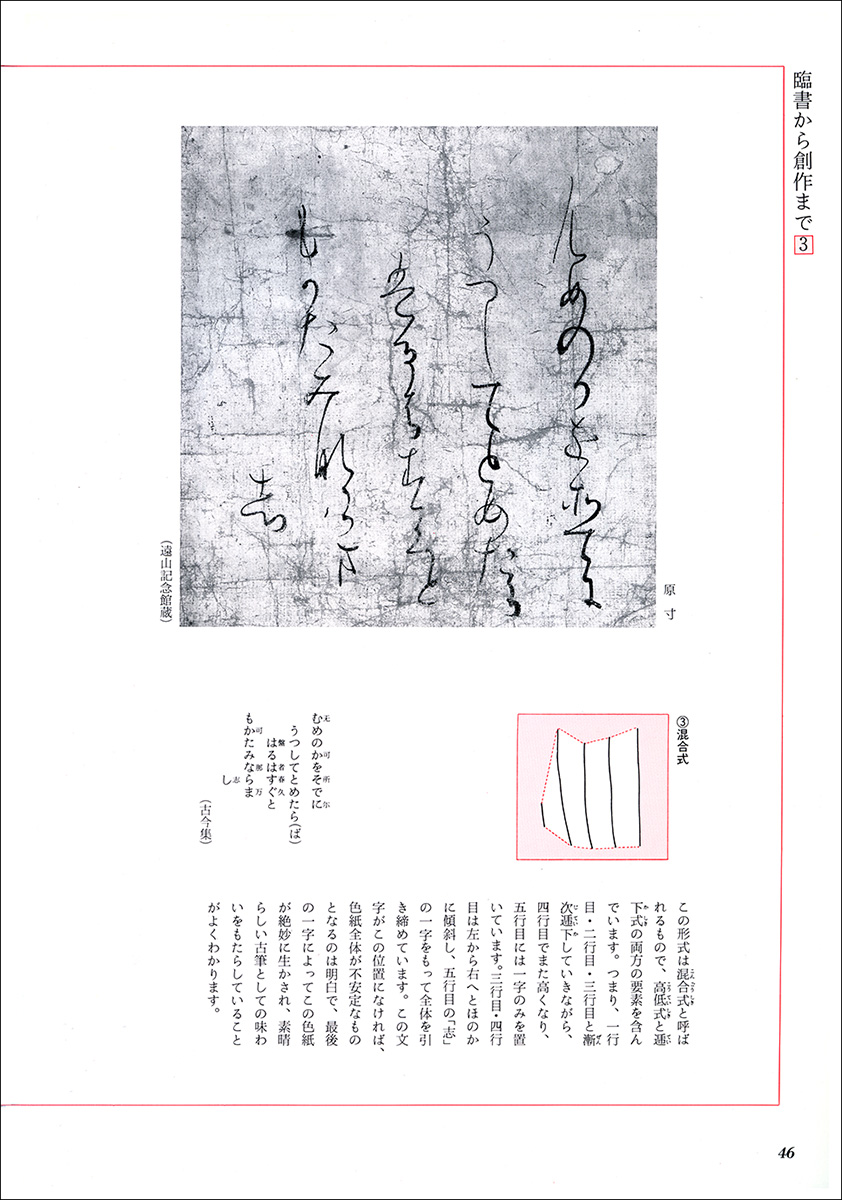 臨書から創作まで 3
原寸
(遠山記念館蔵)
③混合式
むめのかをそでに
うつしてとめたら(ば)
はるはすぐと
もかたみならま
し
(古今集)
この形式は混合式と呼ば
れるもので、高低式と逓
下式の両方の要素を含ん
でいます。つまり、一行
目・二行目・三行目と漸
次逓下していきながら、
四行目でまた高くなり、
五行目には一字のみを置
いています。三行目・四行
目は左から右へとほのか
に傾斜し、五行目の「志」
の一字をもって全体を引
き締めています。この文
字がこの位置になければ、
色紙全体が不安定なもの
となるのは明白で、最後
の一字によってこの色紙
が絶妙に生かされ、素晴
らしい古筆としての味わ
いをもたらしていること
がよくわかります。
46